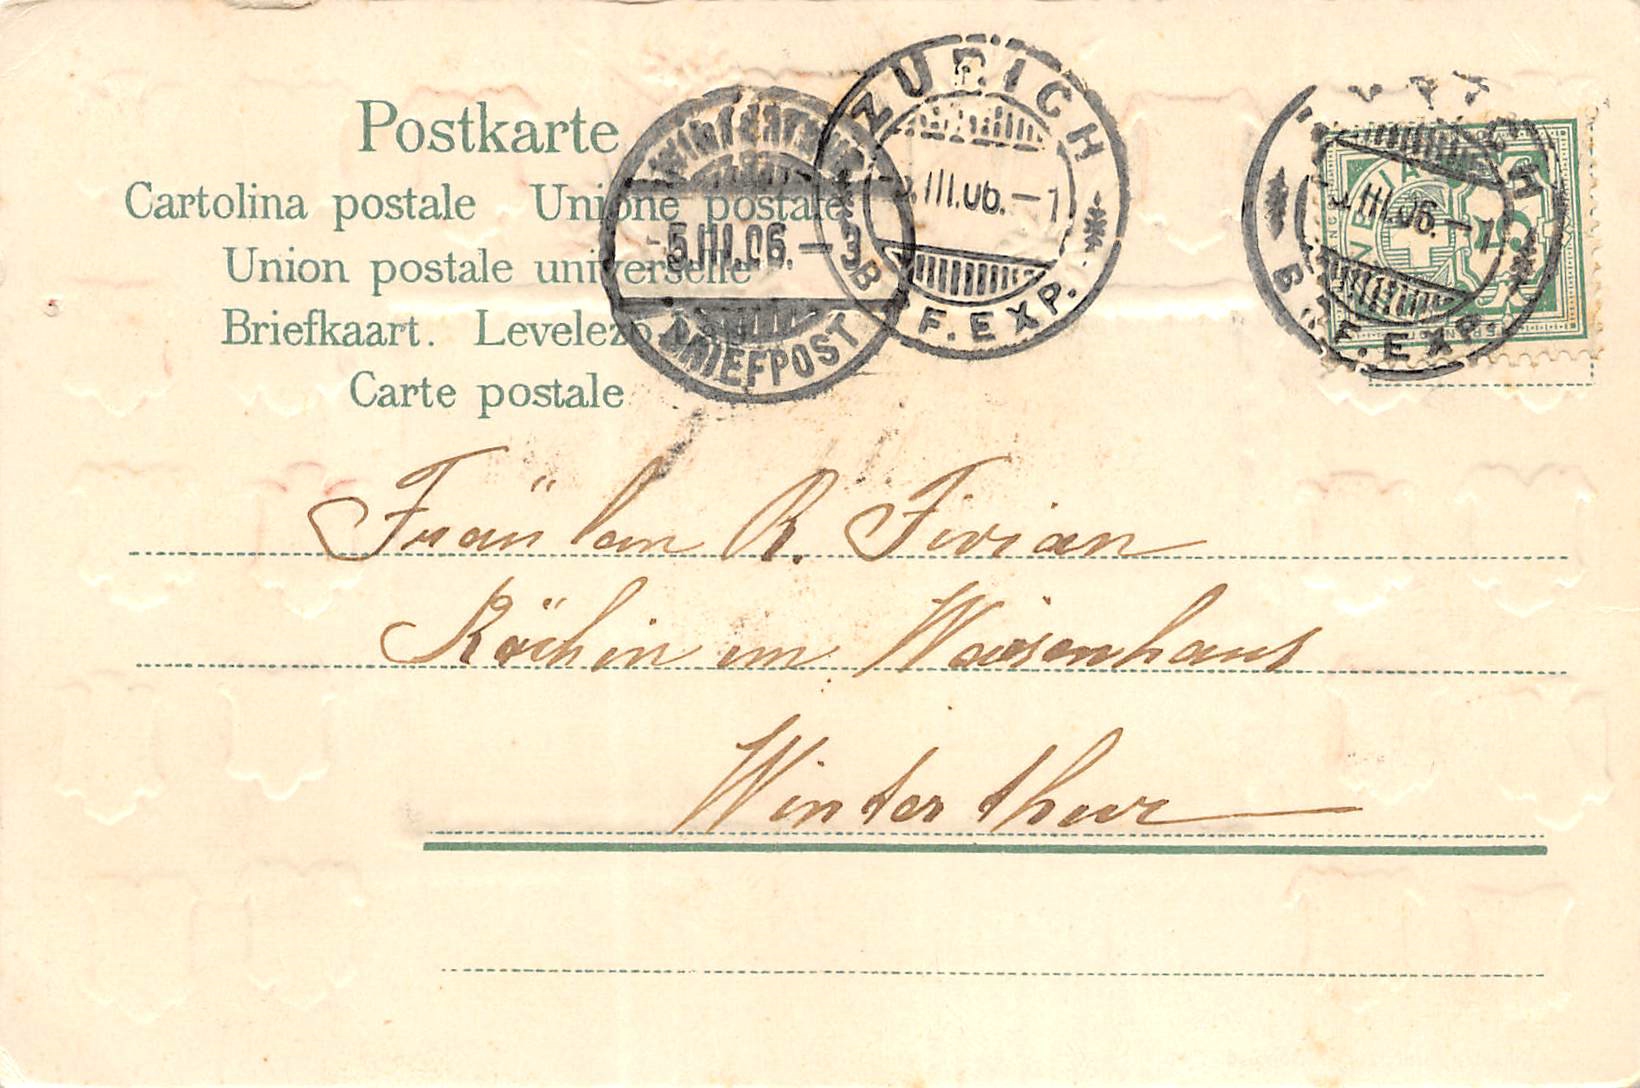 Postkarte
Cartolina postale Unione postale
Union postale universelle
Briefkaart. Levelezo
Carte postale
Winterthur
5.III.06.–3
BRIEFPOST
ZÜRICH
III.06.–1
BRF.EXP.
HELVETIA
5
III.06.–1
F.EXP.
Fräulein R. Fivian
Köchin im Waisenhaus
Winterthur